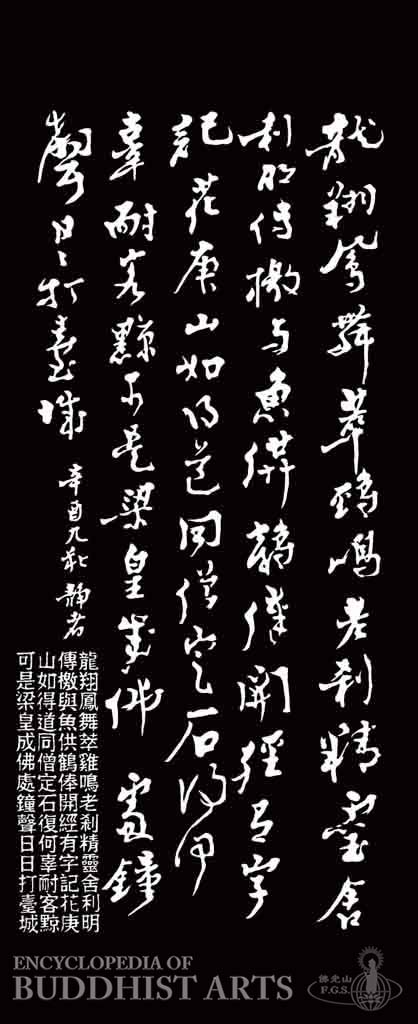 龍翔鳳舞萃鷄鳴老刹精靈舍
利明傳檄与魚供鶴俸開經有字
記花庚山如得道同僧定石復何
辜耐客黥可是梁皇成佛處鐘
聲日日打臺城 辛酉九秋 靜者
龍翔鳳舞萃雞鳴老剎精靈舍利明
傳檄與魚供鶴俸開經有字記花庚
山如得道同僧定石復何辜耐客黥
可是梁皇成佛處鐘聲日日打臺城
ENCYCLOPEDIA OF
BUDDHIST ARTS
佛光山
F.G.S.